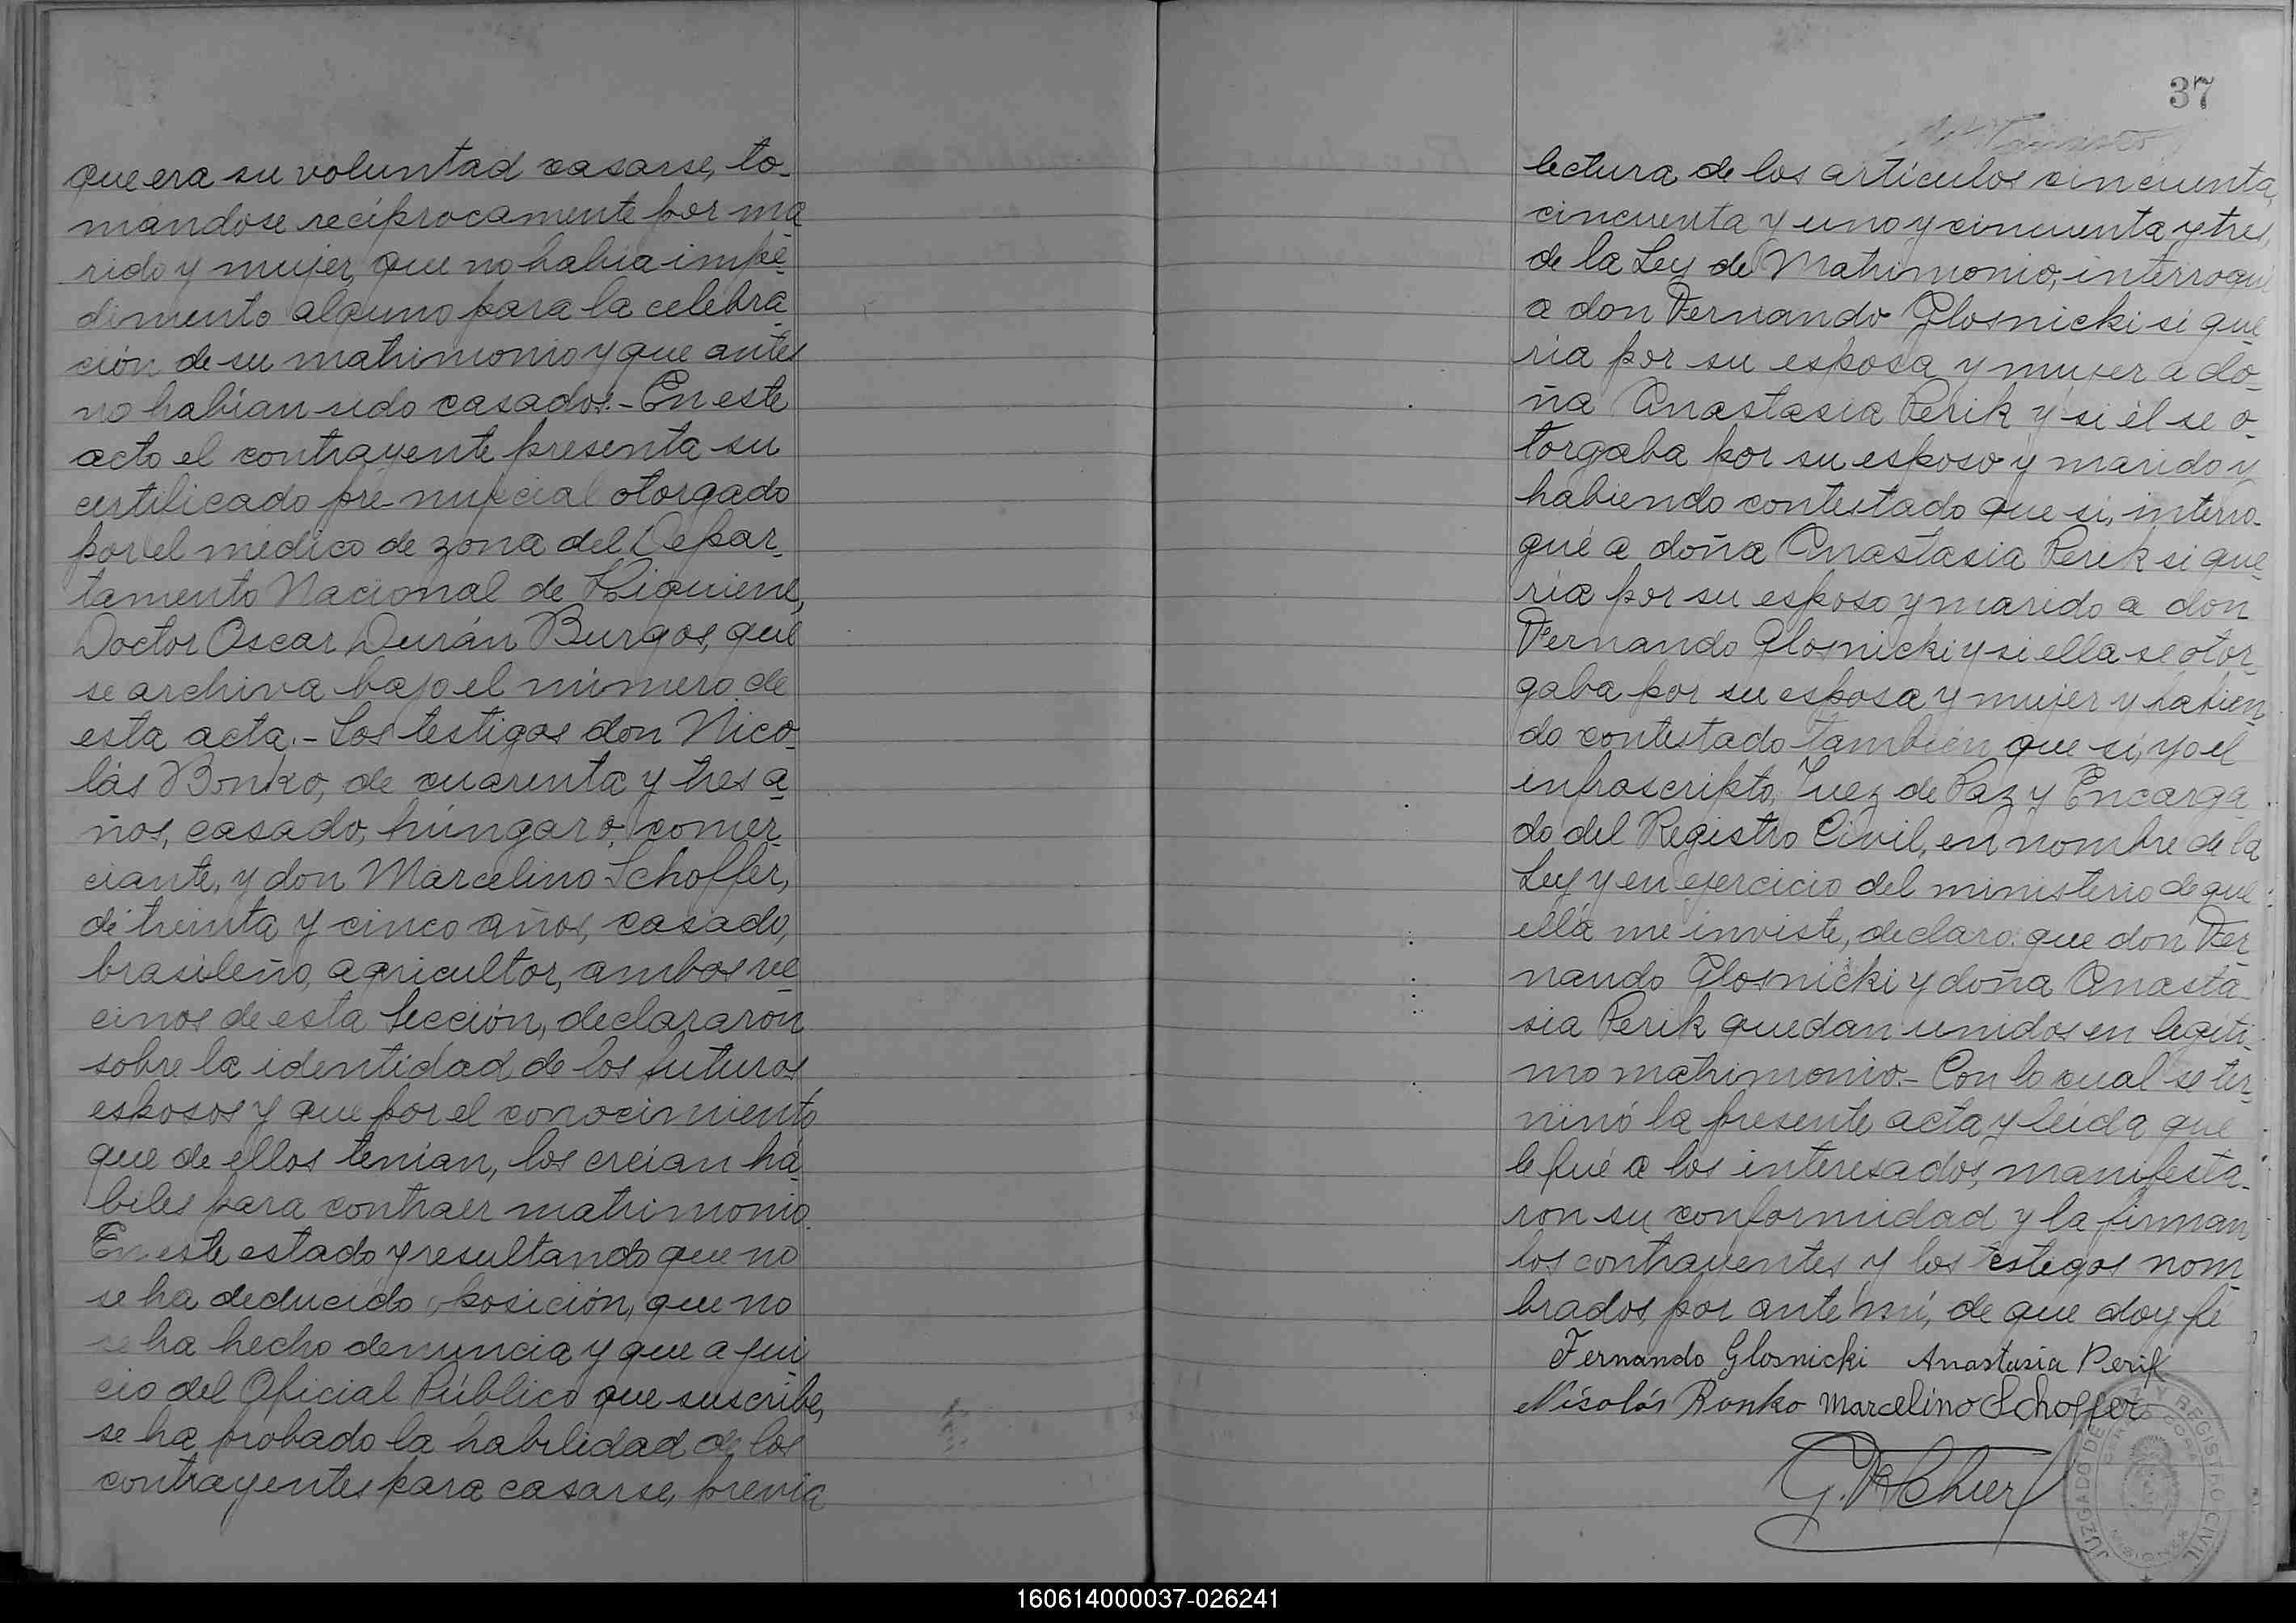 que era su voluntad casarse, to-
mandose recíprocamente por ma
rido y mujer, que no habia impe-
dimento alguno para la celebra-
ción de su matrimonio y que antes
no habían sido casados.- En este
acto el contrayente presenta su
certificado pre-nupcial otorgado
por el médico de zona del Depar-
tamento Nacional de Higuiene,
Doctor Oscar Durán Burgos, que
se archiva bajo el número de
esta acta.- Los testigos don Nico-
lás Bonko, de cuarenta y tres a-
ños, casado, húngaro, comer-
ciante, y don Marcelino Schoffer,
de treinta y cinco años, casado,
brasileño, agricultor, ambos ve-
cinos de esta Sección, declararon
sobre la identidad de los futuros
esposos y que por el conocimiento
que de ellos tenian, los creian há-
biles para contraer matrimonio.
En este estado y resultando que no
se ha deducido oposición, que no
se ha hecho denuncia y que a jui-
cio del Oficial Público que suscribe,
se ha probado la habilidad de los
contrayentes para casarse, previa
37
lectura de los artículos cincuenta,
cincuenta y uno y cincuenta y tres,
de la Ley de Matrimonio, interrogué
a don Fernando Glosnicki si que-
ria por su esposa y mujer a do-
ña Anastasia Perik y si él se o-
torgaba por su esposo y marido y
habiendo contestado que si, interro-
gué a doña Anastasia Perik si que-
ria por su esposo y marido a don
Fernando Glosnicki y si ella se otor-
gaba por su esposa y mujer y habien-
do contestado también que si, yo el
infrascripto, Juez de Paz y Encarga-
do del Registro Civil, en nombre de la
Ley y en ejercicio del ministerio de que
ella me inviste, declaro: que don Fer-
nando Glosnicki y doña Anasta-
sia Perik quedan unidos en legiti-
mo matrimonio.- Con lo cual se ter-
minó la presente acta y leída que
le fué a los interesados, manifesta-
ron su conformidad y la firman
los contrayentes y los testigos nom-
brados, por ante mí, de que doy fé
Fernando Glosnicki Anastasia Perik
Nicolás Bonko Marcelino Schoffer
JUZGADO DE PAZ Y REGISTRO CIVIL
MISIONES
160614000037-026241